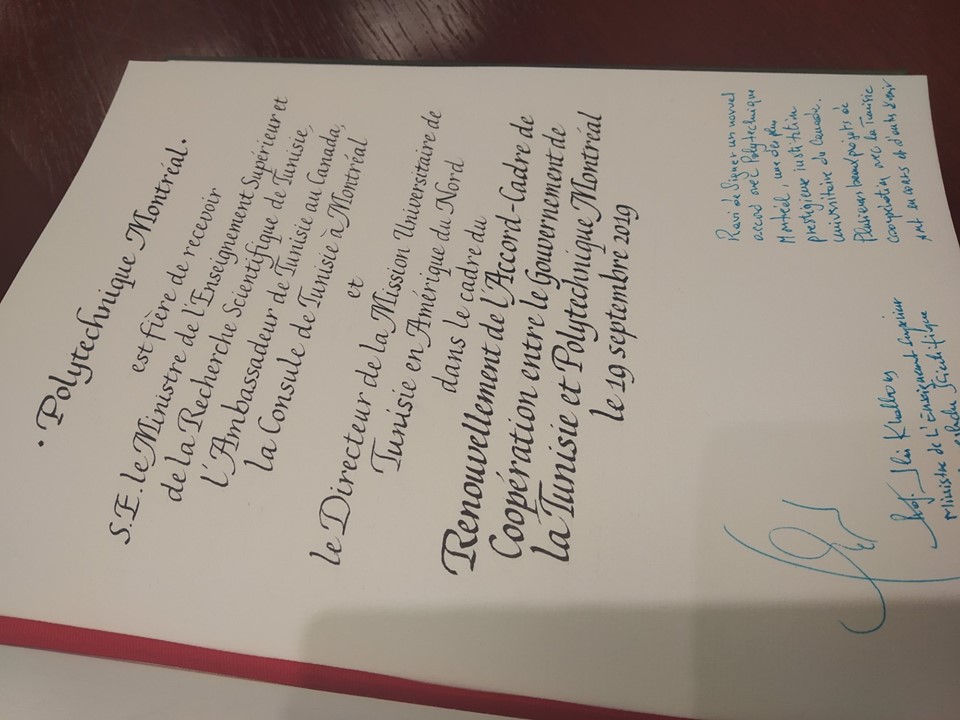 • Polytechnique Montréal •
est fière de recevoir
S.E. le Ministre de l'Enseignement Supérieur et
de la Recherche Scientifique de Tunisie,
l'Ambassadeur de Tunisie au Canada,
la Consule de Tunisie à Montréal
et
le Directeur de la Mission Universitaire de
Tunisie en Amérique du Nord
dans le cadre du
Renouvellement de l'Accord-Cadre de
Coopération entre le Gouvernement de
la Tunisie et Polytechnique Montréal
le 19 septembre 2019
Ravi de signer un nouvel
accord avec Polytechnique
Montréal, une des plus
prestigieuse institution
universitaire du Canada.
Plusieurs beaux projets de
coopération avec la Tunisie
sont en cours et d'autres à venir
Prof. Slim Khalbous
Ministre de l'Enseignement Supérieur
Scientifique